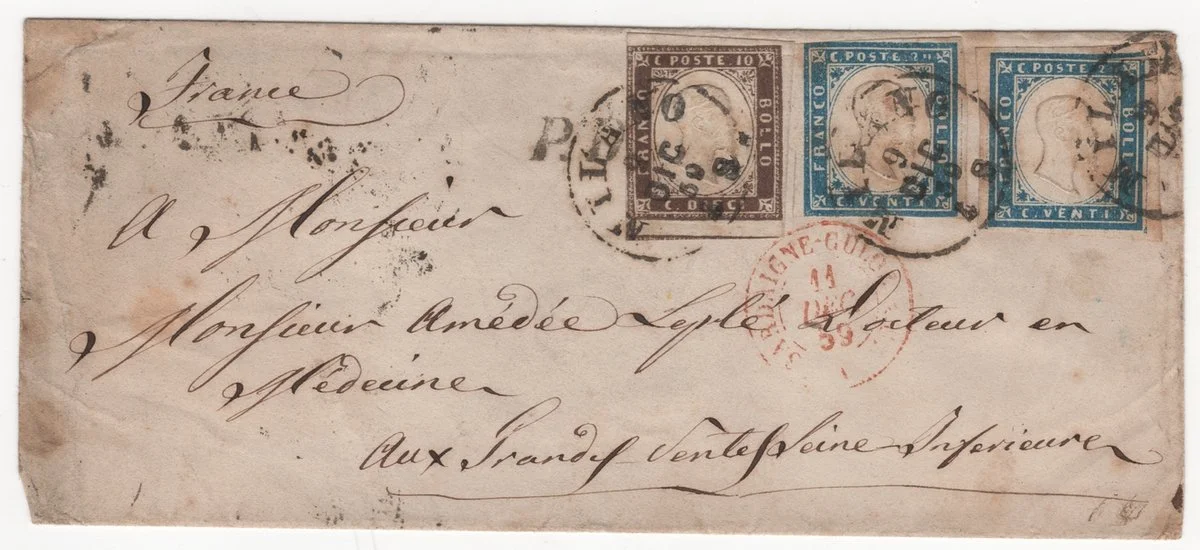 France
C. POSTE 10
FRANCO
BOLLO
C. DIECI
C. POSTE 20
FRANCO
BOLLO
C. VENTI
C. POSTE 2
FRANCO
BOLLO
C. VENTI
MILANO
9
DIC
59
MILANO
9
DIC
59
8
MIL
P.D.
SARDAIGNE-CULOZ
11
DEC
59
A Monsieur
Monsieur Amédée Leplé Docteur en
Médecine
Aux Grandes Ventes Seine Inferieure